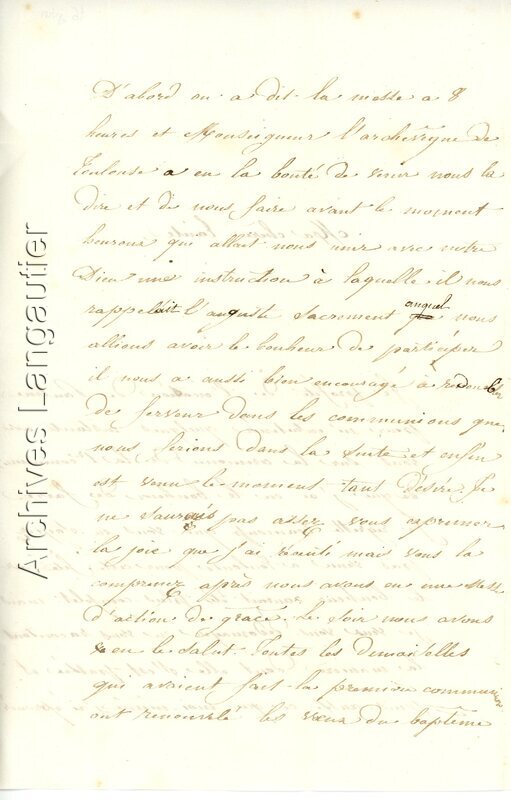 D'abord on a dit la messe a 8
heures et Monseigneur l'archevêque de
Toulouse a eu la bonté de venir nous la
dire et de nous faire avant le moment
heureux qui allait nous unir avec notre
Dieu une instruction à laquelle il nous
rappelait l'auguste Sacrement auquel nous
allions avoir le bonheur de participer
il nous a aussi bien encouragé à redoubler
de ferveur dans les communions que
nous ferions dans la suite et enfin
est venu le moment tant désiré. Je
ne saurais pas assez vous exprimer
la joie que j'ai mais vous la
comprenez après nous avons eu une Messe
d'action de grâce. Le soir nous avons
eu le Salut. Toutes les Demoiselles
qui avoient fait la première communion
ont renouvelé les vœux du baptême
Archives Langautier